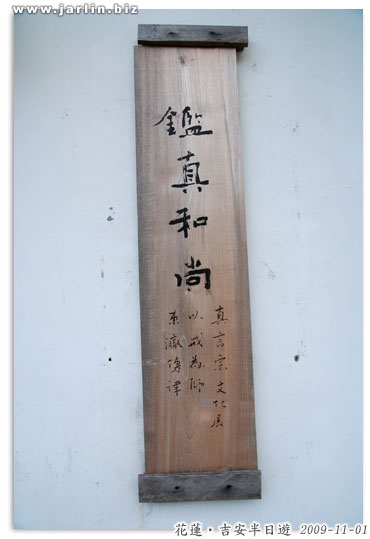 www.jarlin.biz
鑑真和尚
真言宗文化展
以戒為師
東瀛傳律
花蓮・吉安半日遊 2009-11-01